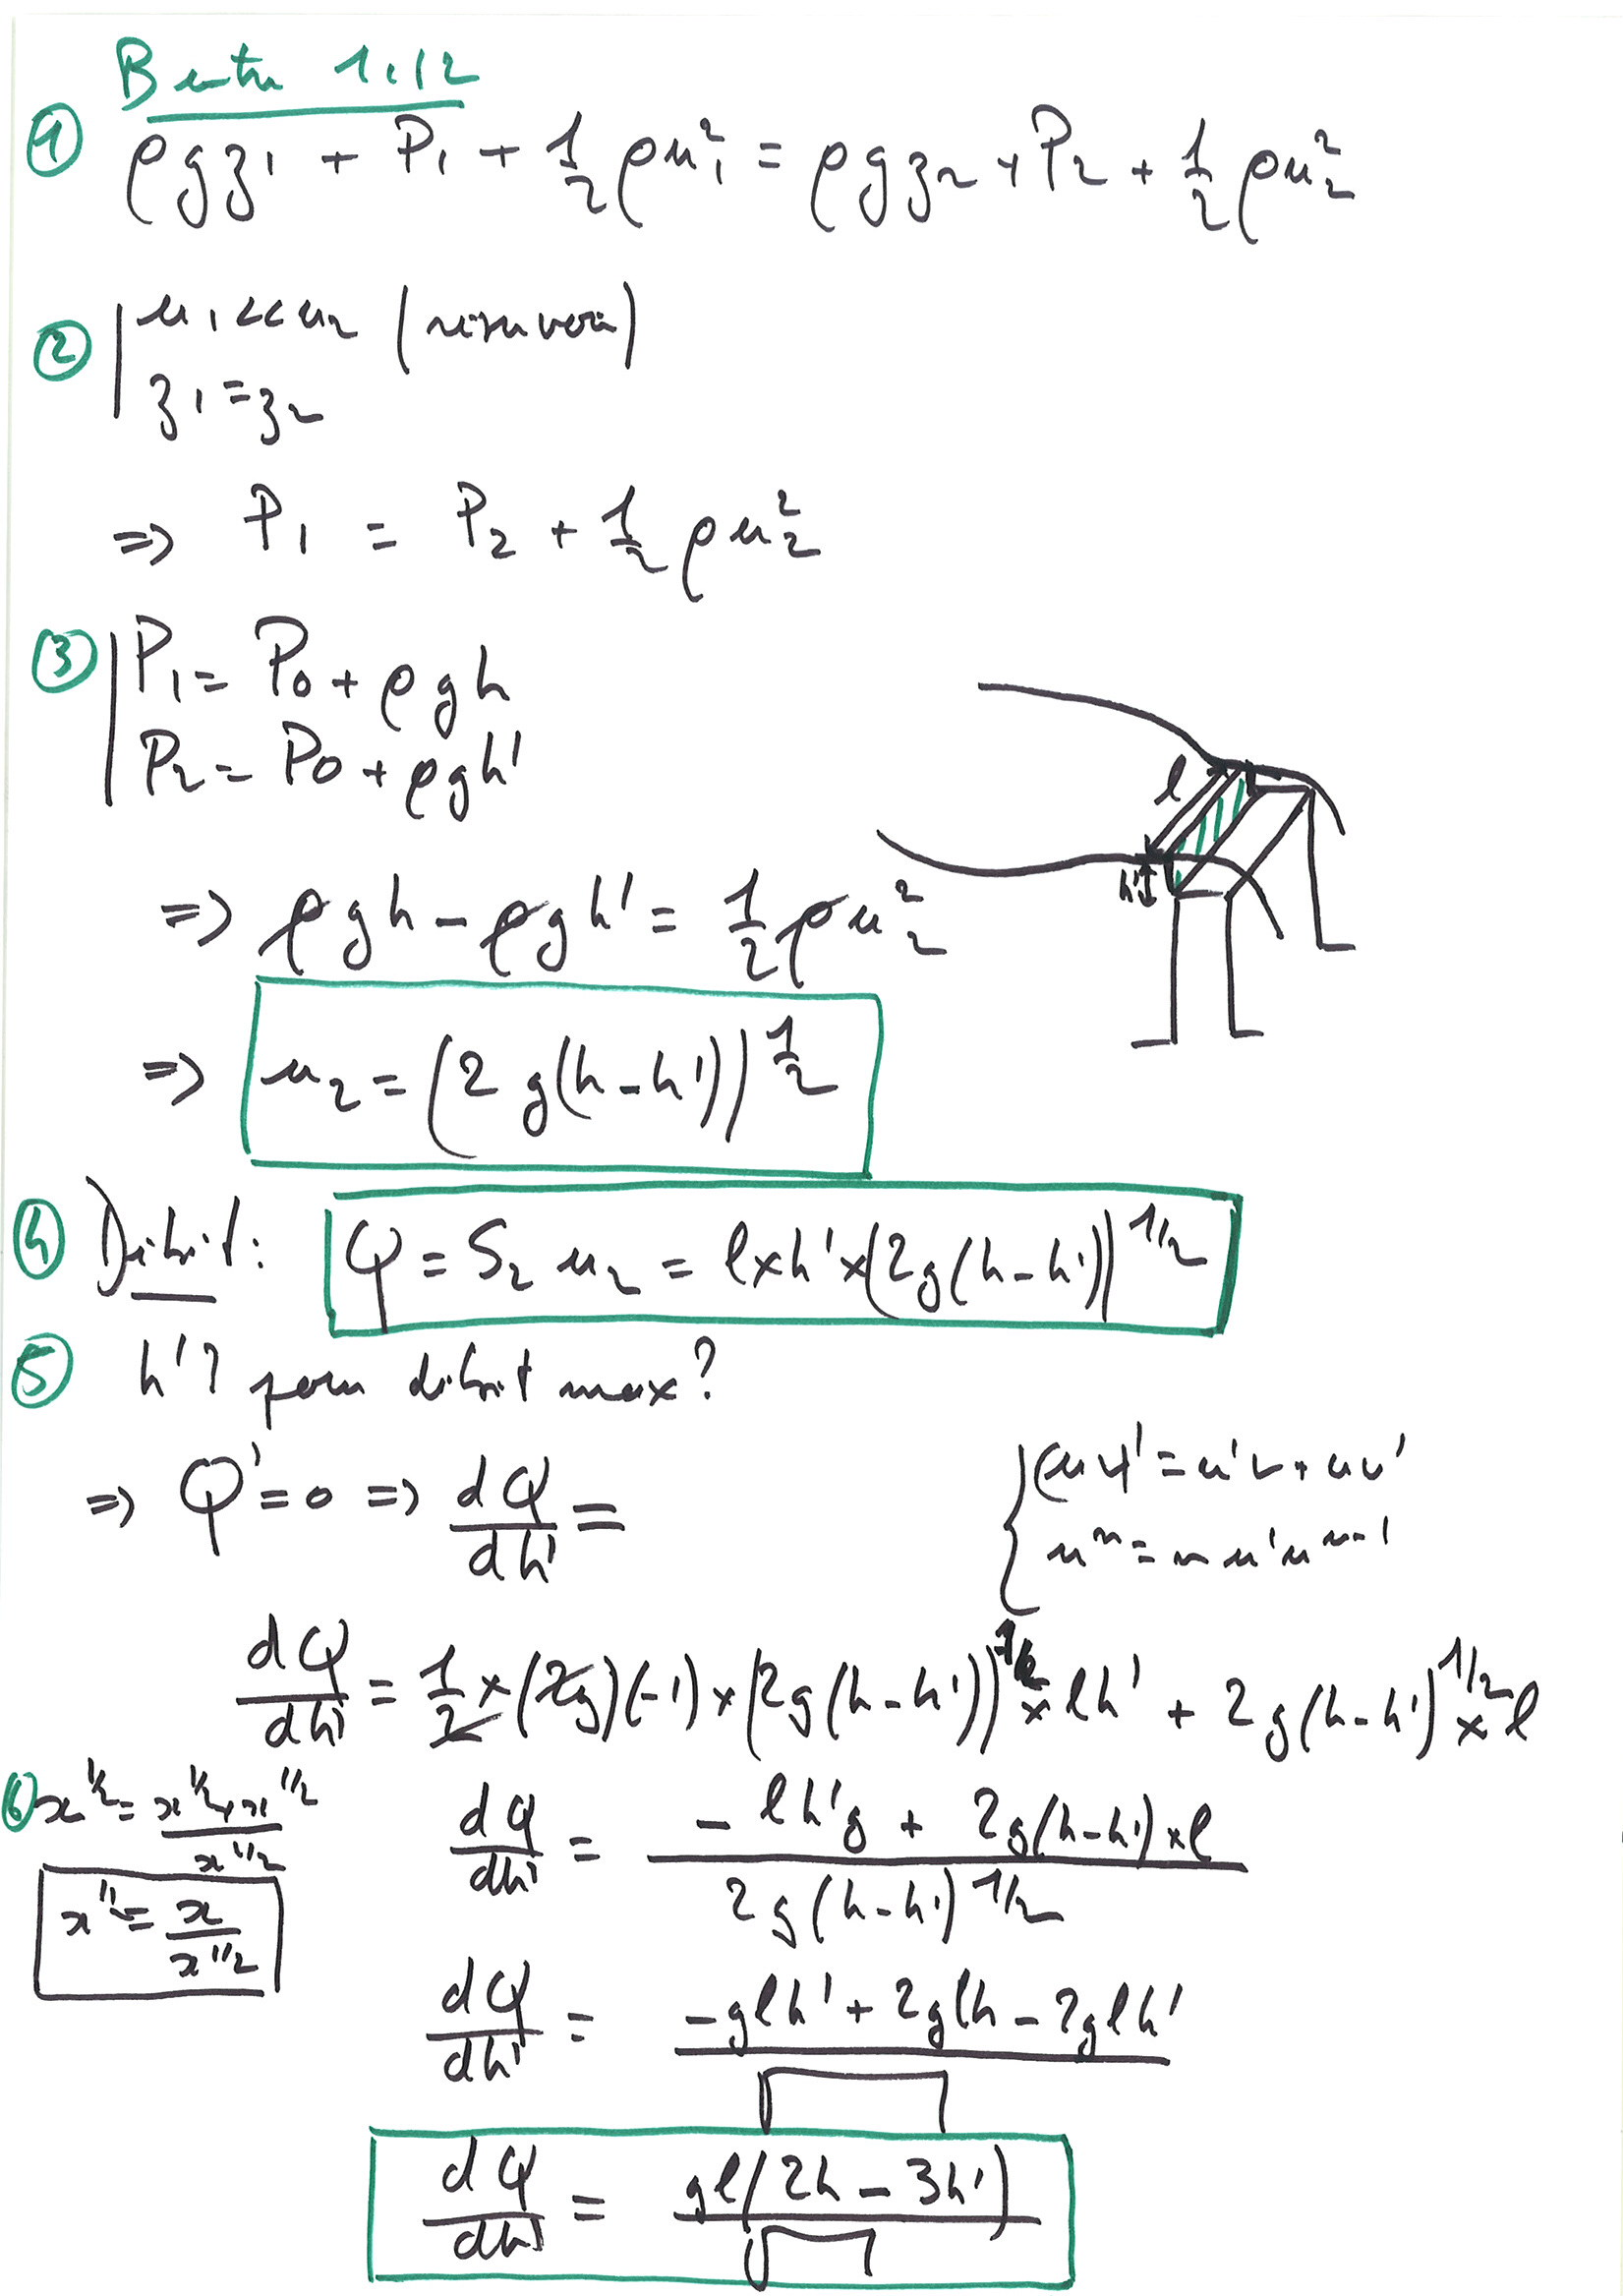 1.12
① ρgz₁ + P₁ + ½ρu₁² = ρgz₂ + P₂ + ½ρu₂²
② u₁ << u₂ (réservoir)
z₁ = z₂
=> P₁ = P₂ + ½ρu₂²
③ P₁ = P₀ + ρgh
P₂ = P₀ + ρgh'
l
h'
=> ρgh - ρgh' = ½ρu₂²
=> u₂ = (2g(h-h'))^½
④ Débit : Q = S₂ u₂ = l×h'×(2g(h-h'))^1/2
⑤ h'? pour débit max ?
=> Q' = 0 => dQ/dh' =
(uv)' = u'v + uv'
uⁿ = n u'uⁿ⁻¹
dQ/dh' = ½ × (2g)(-1) × (2g(h-h'))^-1/2 × lh' + 2g(h-h')^1/2 × l
⑥ x^1/2 = x^1/2 × x^1/2 / x^1/2
x^1/2 = x / x^1/2
dQ/dh' = (-lh'g + 2g(h-h')×l) / 2g(h-h')^1/2
dQ/dh' = (-glh' + 2glh - 2glh') / √
dQ/dh' = gl(2h - 3h') / √